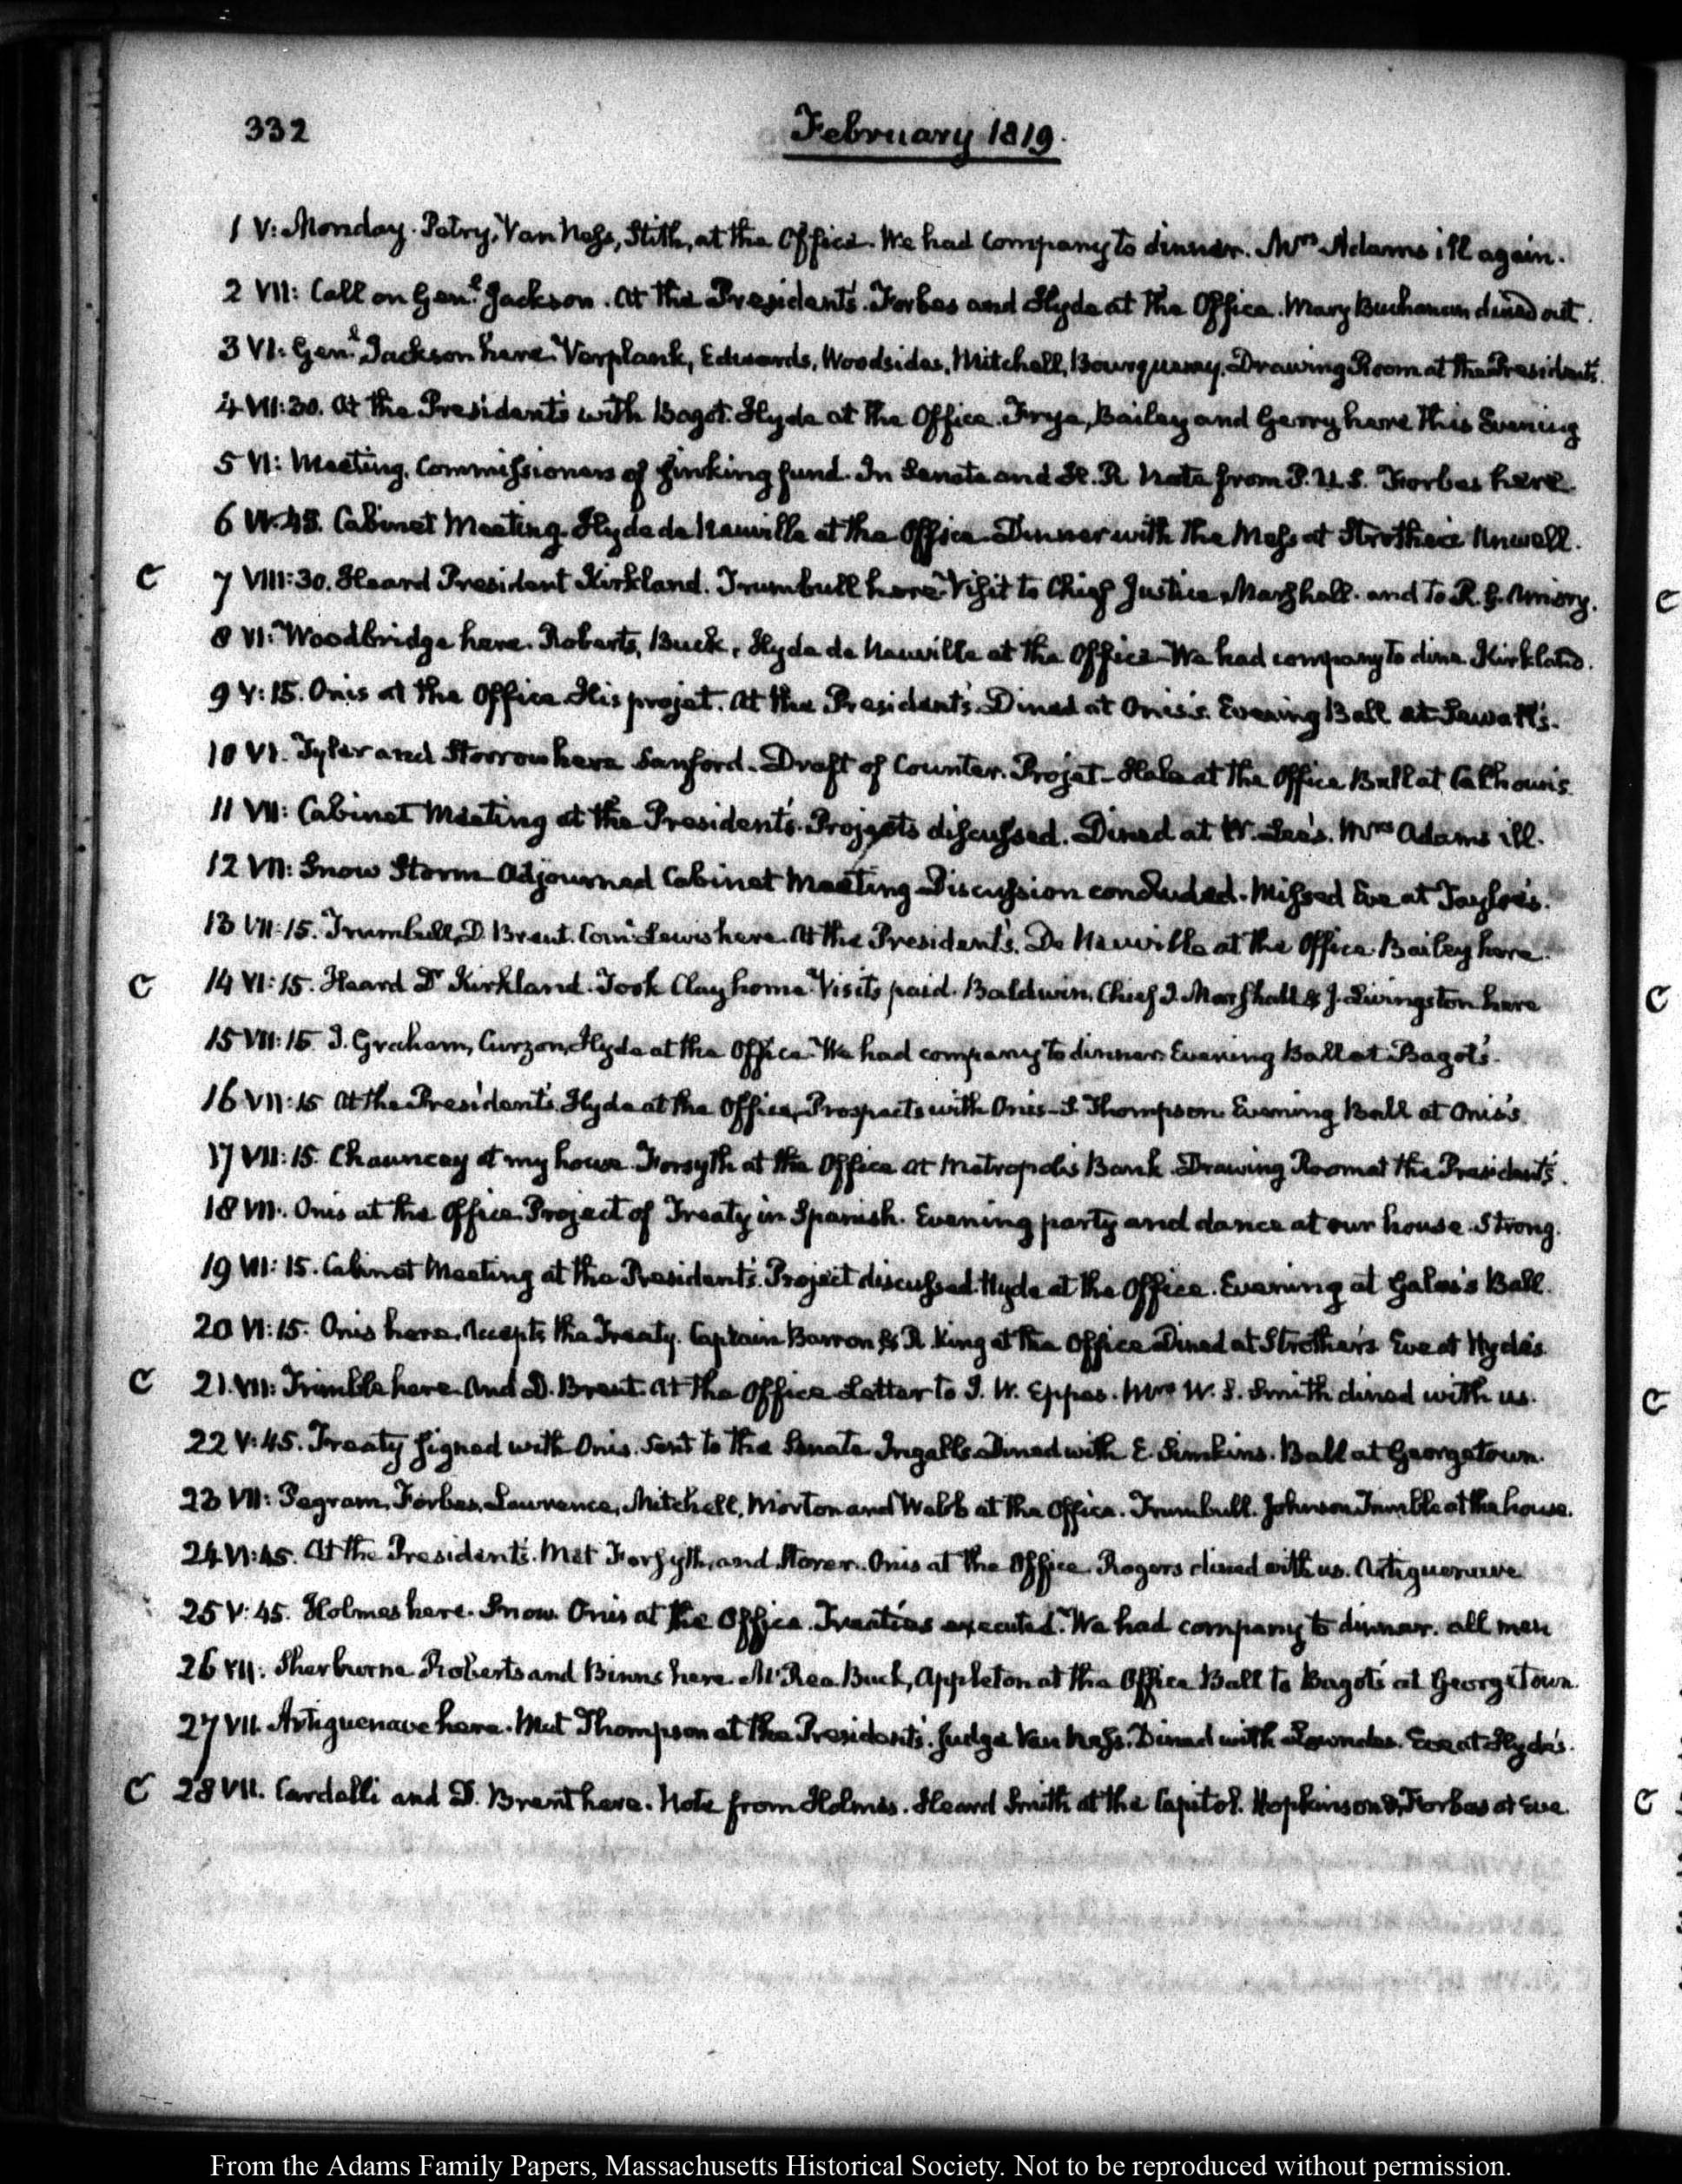 332
February 1819.
1 V: Monday. Petry, Van Ness, Stith, at the Office. We had company to dinner. Mrs Adams ill again.
2 VII: Call on Genl. Jackson. At the President's. Forbes and Hyde at the Office. Mary Buchanan dined out.
3 VI: Genl. Jackson here. Verplank, Edwards, Woodsides, Mitchell, Drawing Room at the President's.
4 VII:30. At the President's with Bagot. Hyde at the Office. Frye, Bailey and Gerry here this Evening
5 VI: Meeting. Commissioners of Sinking fund. In Senate and H. R. Note from P. U. S. Forbes here.
6 45. Cabinet Meeting. Hyde de Neuville at the Office. Dinner with the Mess at Strother's Unwell.
C 7 VIII:30. Heard President Kirkland. Trumbull here. Visit to Chief Justice Marshall. and to R. G. Amory.
8 VI: Woodbridge here. Roberts, Buck, Hyde de Neuville at the Office. We had company to dine. Kirkland.
9 V:15. Onis at the Office. His projet. At the President's. Dined at Onis's. Evening Ball at Sewall's.
10 VI. Tyler and Storrow here Sanford. Draft of Counter-Projet. Hale at the Office Ball at Calhoun's.
11 VII: Cabinet Meeting at the President's. Projects discussed. Dined at W. Lee's. Mrs Adams ill.
12 VII: Snow Storm. Adjourned Cabinet Meeting. Discussion concluded. Missed Eve at Tayloe's.
13 VII:15. Trumbull, D. Brent. Lewis here. At the President's. De Neuville at the Office. Bailey here.
C 14 VI:15. Heard Dr Kirkland. Took Clay home. Visits paid. Baldwin, Chief J. Marshall & J. Livingston here
15 VII:15 J. Graham, Curzon, Hyde at the Office. We had company to dinner. Evening Ball at Bagot's.
16 VII:15 At the President's. Hyde at the Office, Prospects with Onis. S. Thompson. Evening Ball at Onis's.
17 VII:15. Chauncey at my house. Forsyth at the Office at Metropolis Bank. Drawing Room at the President's.
18 VII. Onis at the Office. Project of Treaty in Spanish. Evening party and dance at our house. Strong.
19 VII:15. Cabinet Meeting at the President's. Project discussed. Hyde at the Office. Evening at Gales's Ball.
20 VI:15. Onis here. Accepts the Treaty. Captain Barron & R. King at the Office Dined at Strother's Eve at Hyde's
C 21. VII: Trimble here and D. Brent. At the Office Letter to J. W. Eppes. Mrs W. S. Smith dined with us.
22 V:45. Treaty signed with Onis. sent to the Senate. Ingalls. Dined with E. Simkins. Ball at Georgetown.
23 VII: Pegram, Forbes, Lawrence, Mitchell, Morton and Webb at the Office. Trumbull. Johnson Trimble at the house.
24 VI:45. At the President's. Met Forsyth, and Storer. Onis at the Office. Rogers dined with us. Artiguenave
25 V:45. Holmes here. Snow. Onis at the Office. Treaties executed. We had company to dinner. all men
26 VII. Sherburne Roberts and Binns here. McRea Buck, Appleton at the Office Ball to Bagot's at Georgetown.
27 VII. Artiguenave here. Met Thompson at the President's. Judge Van Ness. Dined with Lowndes. Eve at Hyde's.
C 28 VII. Cardelli and D. Brent here. Note from Holmes. Heard Smith at the Capitol. Hopkinson & Forbes at Eve.
From the Adams Family Papers, Massachusetts Historical Society. Not to be reproduced without permission.